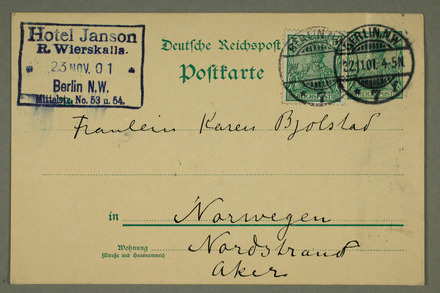 Hotel Janson
R. Wierskalla.
* 23 NOV. 01 *
Berlin N.W.
Mittelstr. No. 53 u. 54.
Deutsche Reichspost
Postkarte
BERLIN, N.W.
BERLIN N.W.
22.11.01. 4-5N
* 7 *
REICHSPOST
Fraulein Karen Bjolstad
in Norwegen
Wohnung
(Straße und Hausnummer)
Nordstrand
Aker